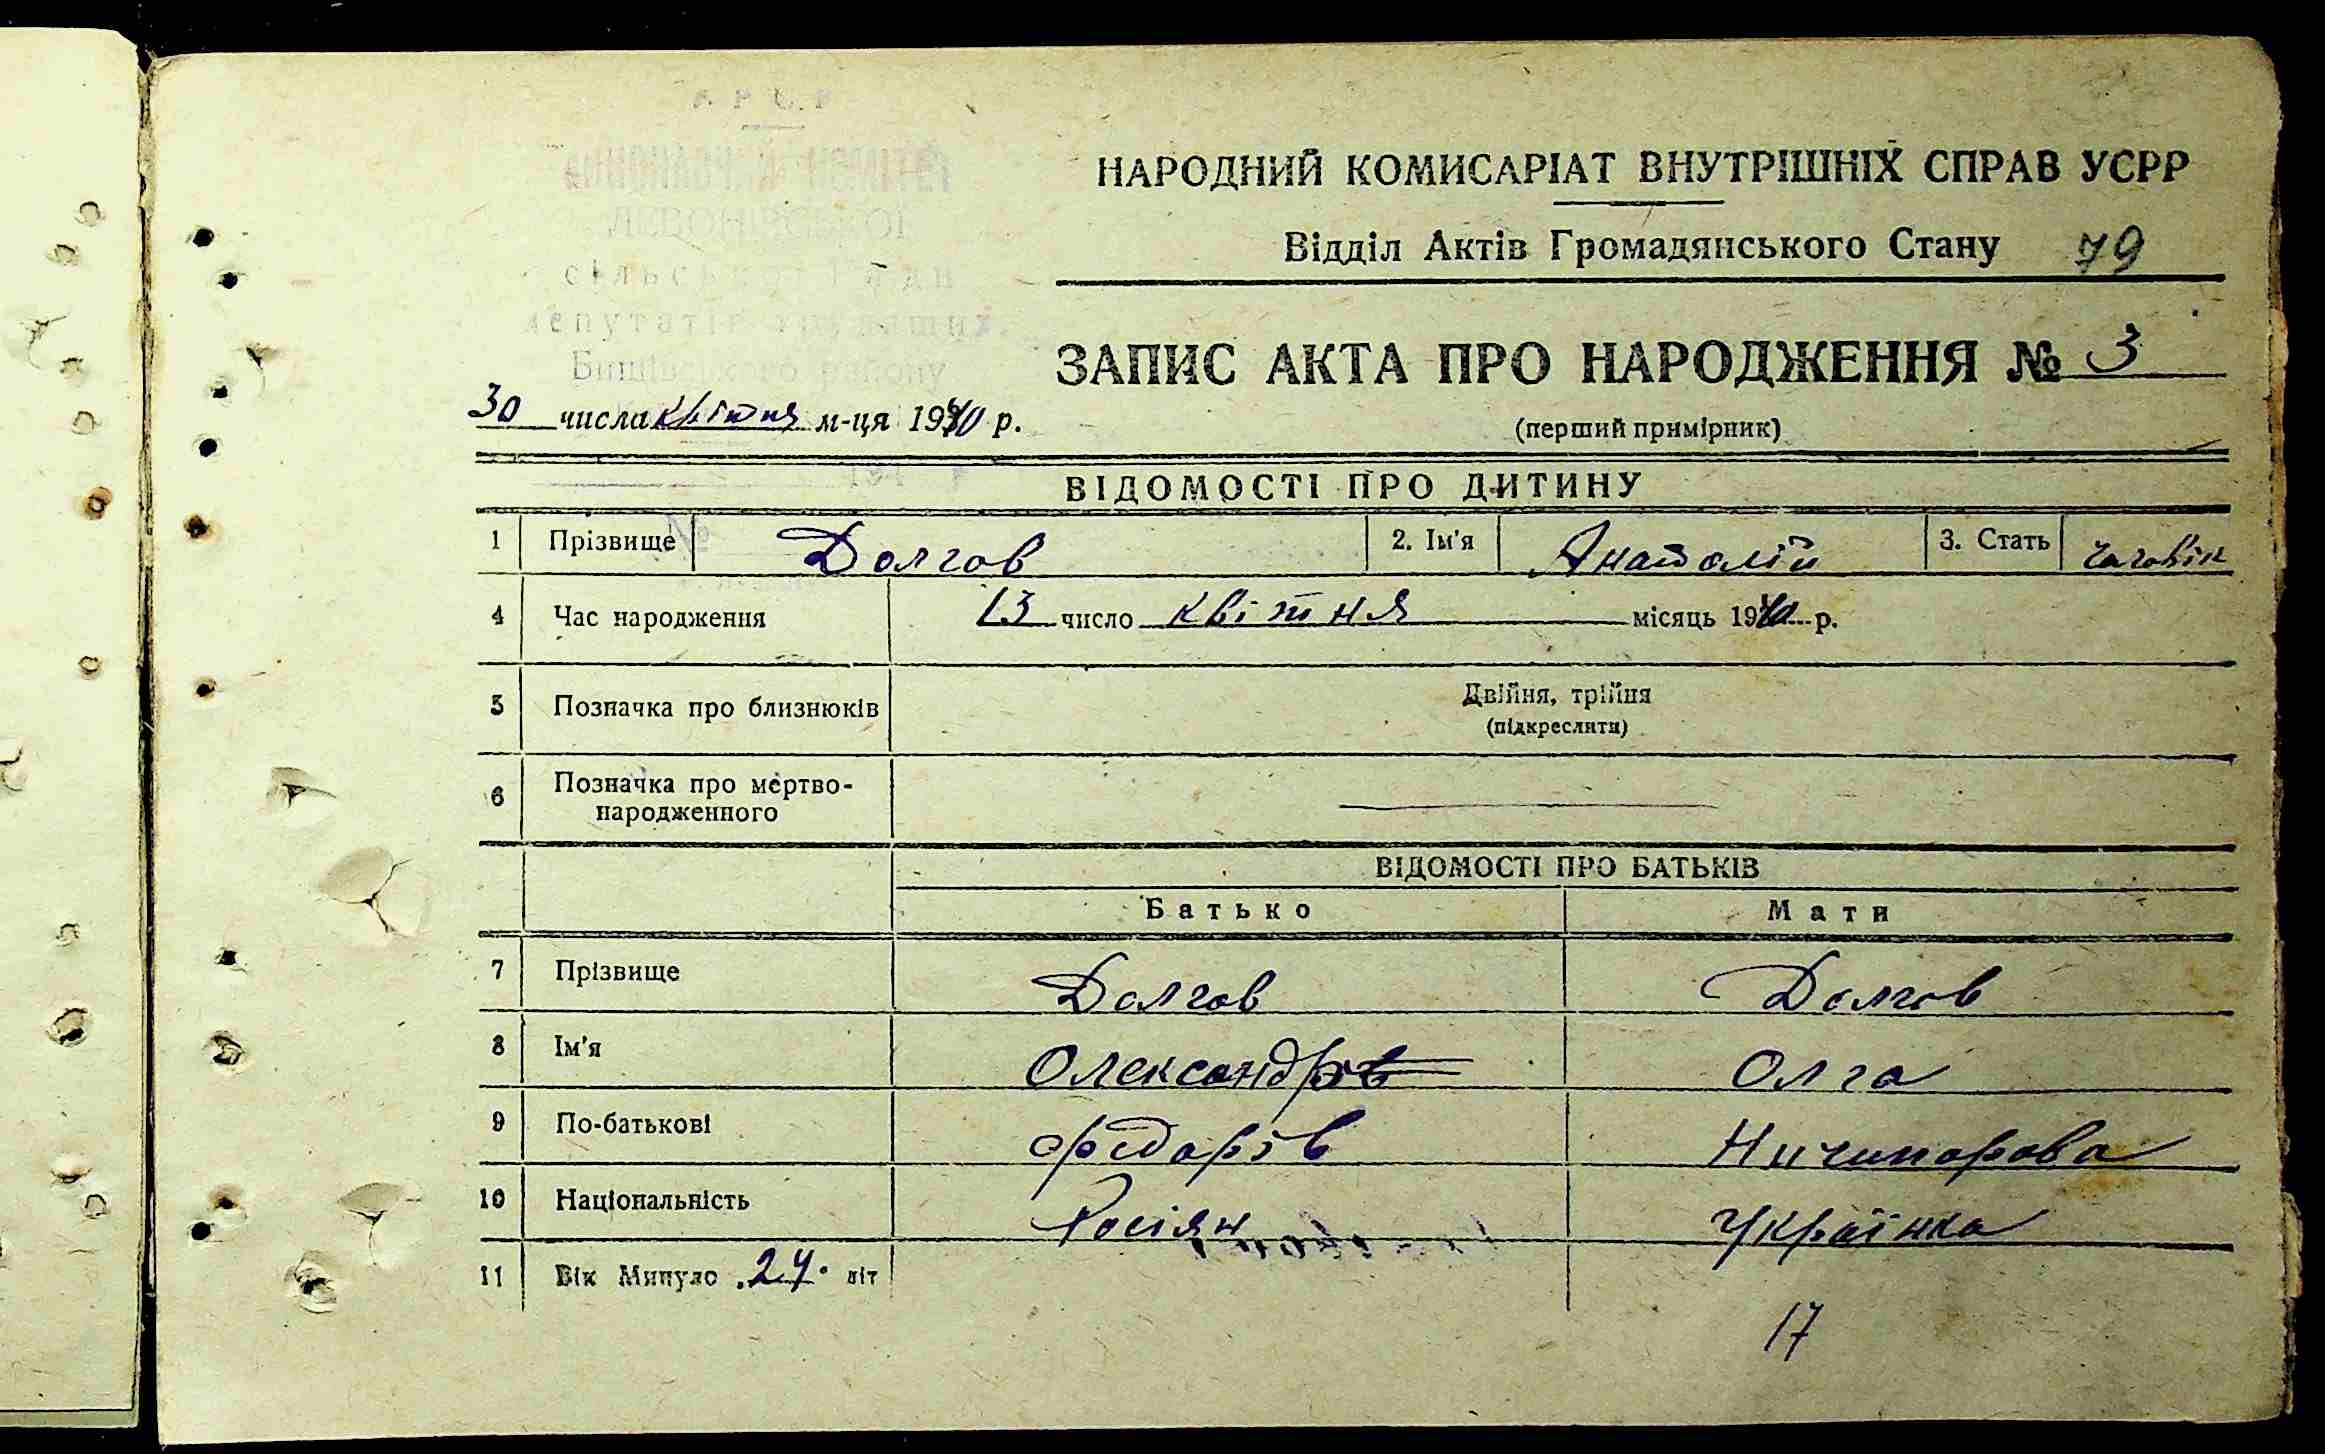 КОМІТЕТ
ЛЕВОНІВСЬКОЇ
НАРОДНИЙ КОМИСАРІАТ ВНУТРІШНІХ СПРАВ УСРР
Відділ Актів Громадянського Стану 79
ЗАПИС АКТА ПРО НАРОДЖЕННЯ № 3
30 числа квітня м-ця 1940 р.
(перший примірник)
ВІДОМОСТІ ПРО ДИТИНУ
1 Прізвище Долгов 2. Ім'я Анатолій 3. Стать чоловік
4 Час народження 13 число квітня місяць 1940 р.
5 Позначка про близнюків Двійня, трійня
(підкреслити)
6 Позначка про мертво-
народженного
ВІДОМОСТІ ПРО БАТЬКІВ
Батько Мати
7 Прізвище Долгов Долгов
8 Ім'я Олександрів Олга
9 По-батькові Федорів Ничипорова
10 Національність Росіян Українка
11 Вік Минуло 24 літ
17